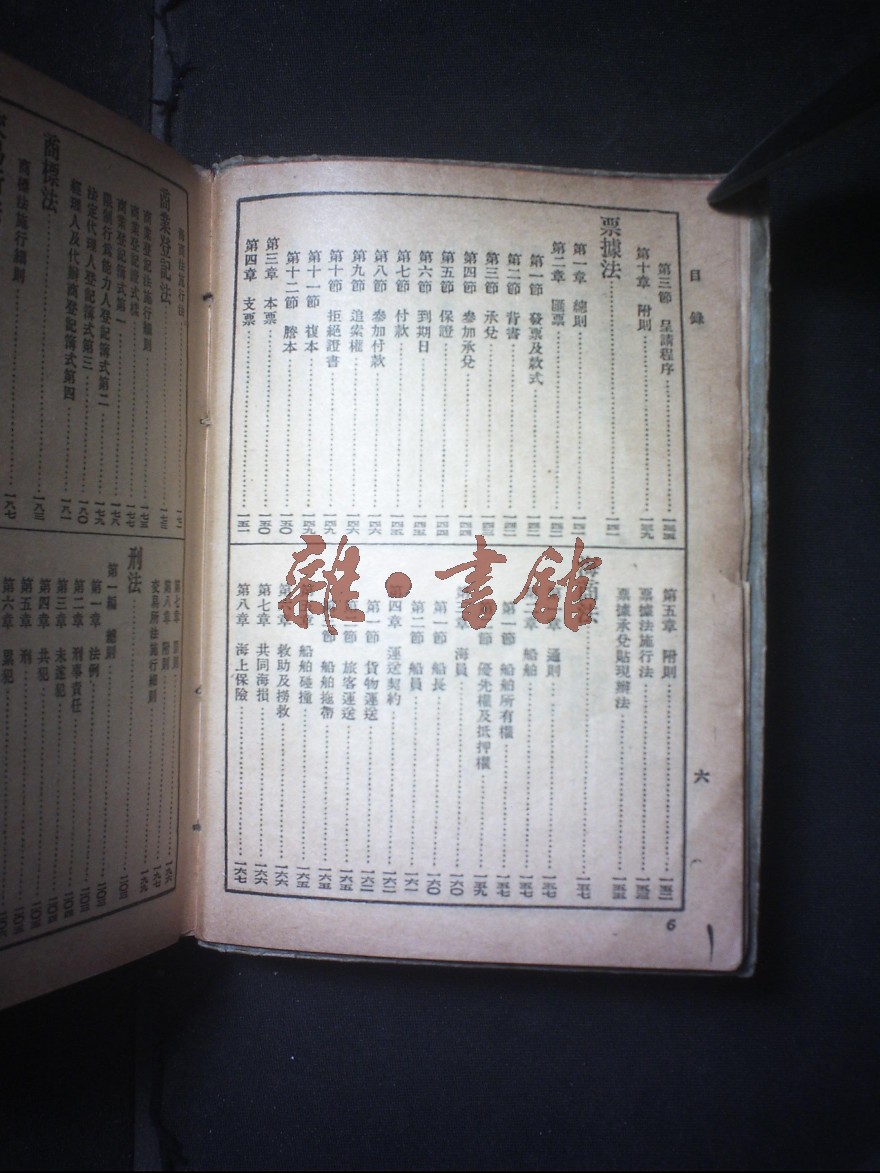 目錄
六
第三節 呈請程序
第十章 附則
票據法
第一章 總則
第二章 匯票
第一節 發票及款式
第二節 背書
第三節 承兌
第四節 參加承兌
第五節 保證
第六節 到期日
第七節 付款
第八節 參加付款
第九節 追索權
第十節 拒絕證書
第十一節 複本
第十二節 謄本 一五〇
第三章 本票 一五〇
第四章 支票 一五一
第五章 附則
票據法施行法
票據承兌貼現辦法
通則 一五七
船舶 一五七
第一節 船舶所有權 一五七
優先權及抵押權 一五九
海員 一六〇
第一節 船長 一六〇
第二節 船員 一六一
第四章 運送契約 一六二
第一節 貨物運送 一六二
旅客運送 一六五
船舶拖帶 一六五
船舶碰撞 一六五
救助及撈救 一六六
第七章 共同海損 一六六
第八章 海上保險 一六七
6
雜·書館
商業登記法
商業登記法施行細則
商業登記證式樣
商業登記簿式第一
限制行為能力人登記簿式第二
法定代理人登記簿式第三
經理人及代辦商登記簿式第四
商標法
商標法施行細則
第八章 附則
交易所法施行細則
刑法
第一編 總則
第一章 法例
第二章 刑事責任
第三章 未遂犯
第四章 共犯
第五章 刑
第六章 累犯